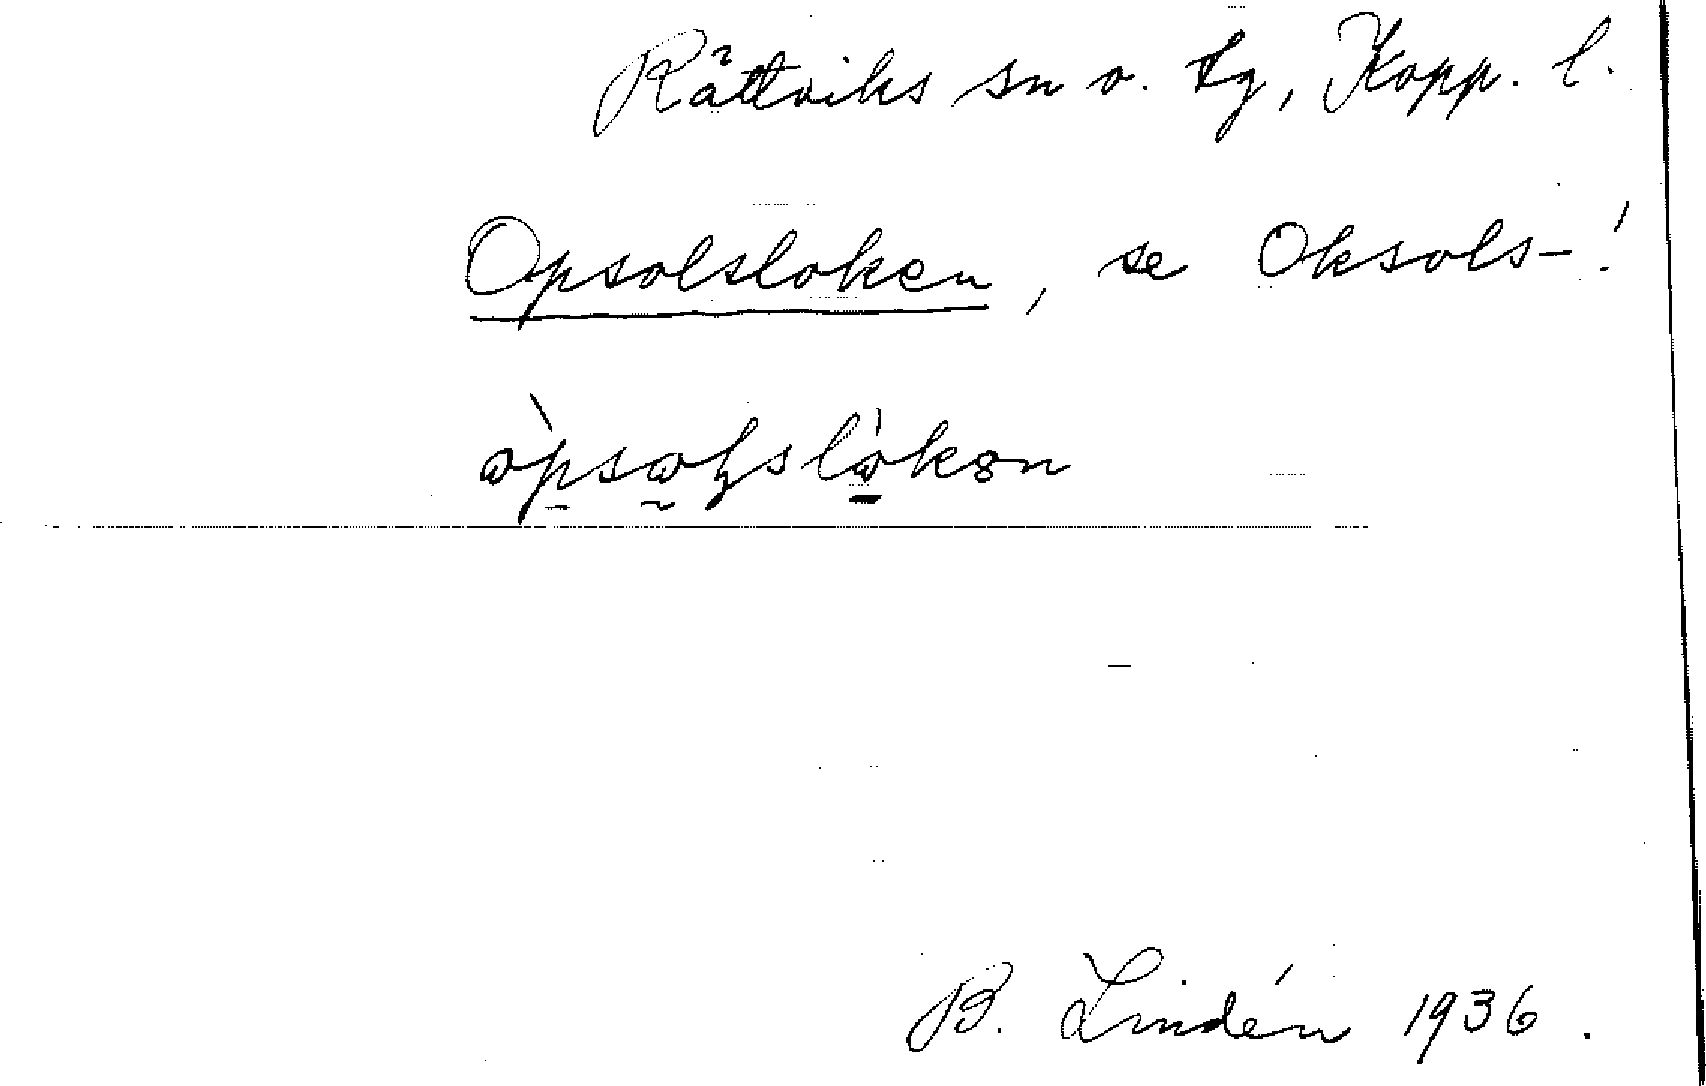 Rättviks sn o. tg, Kopp. l.
Opsolsloken, se Oksols-!
B. Lindén 1936.